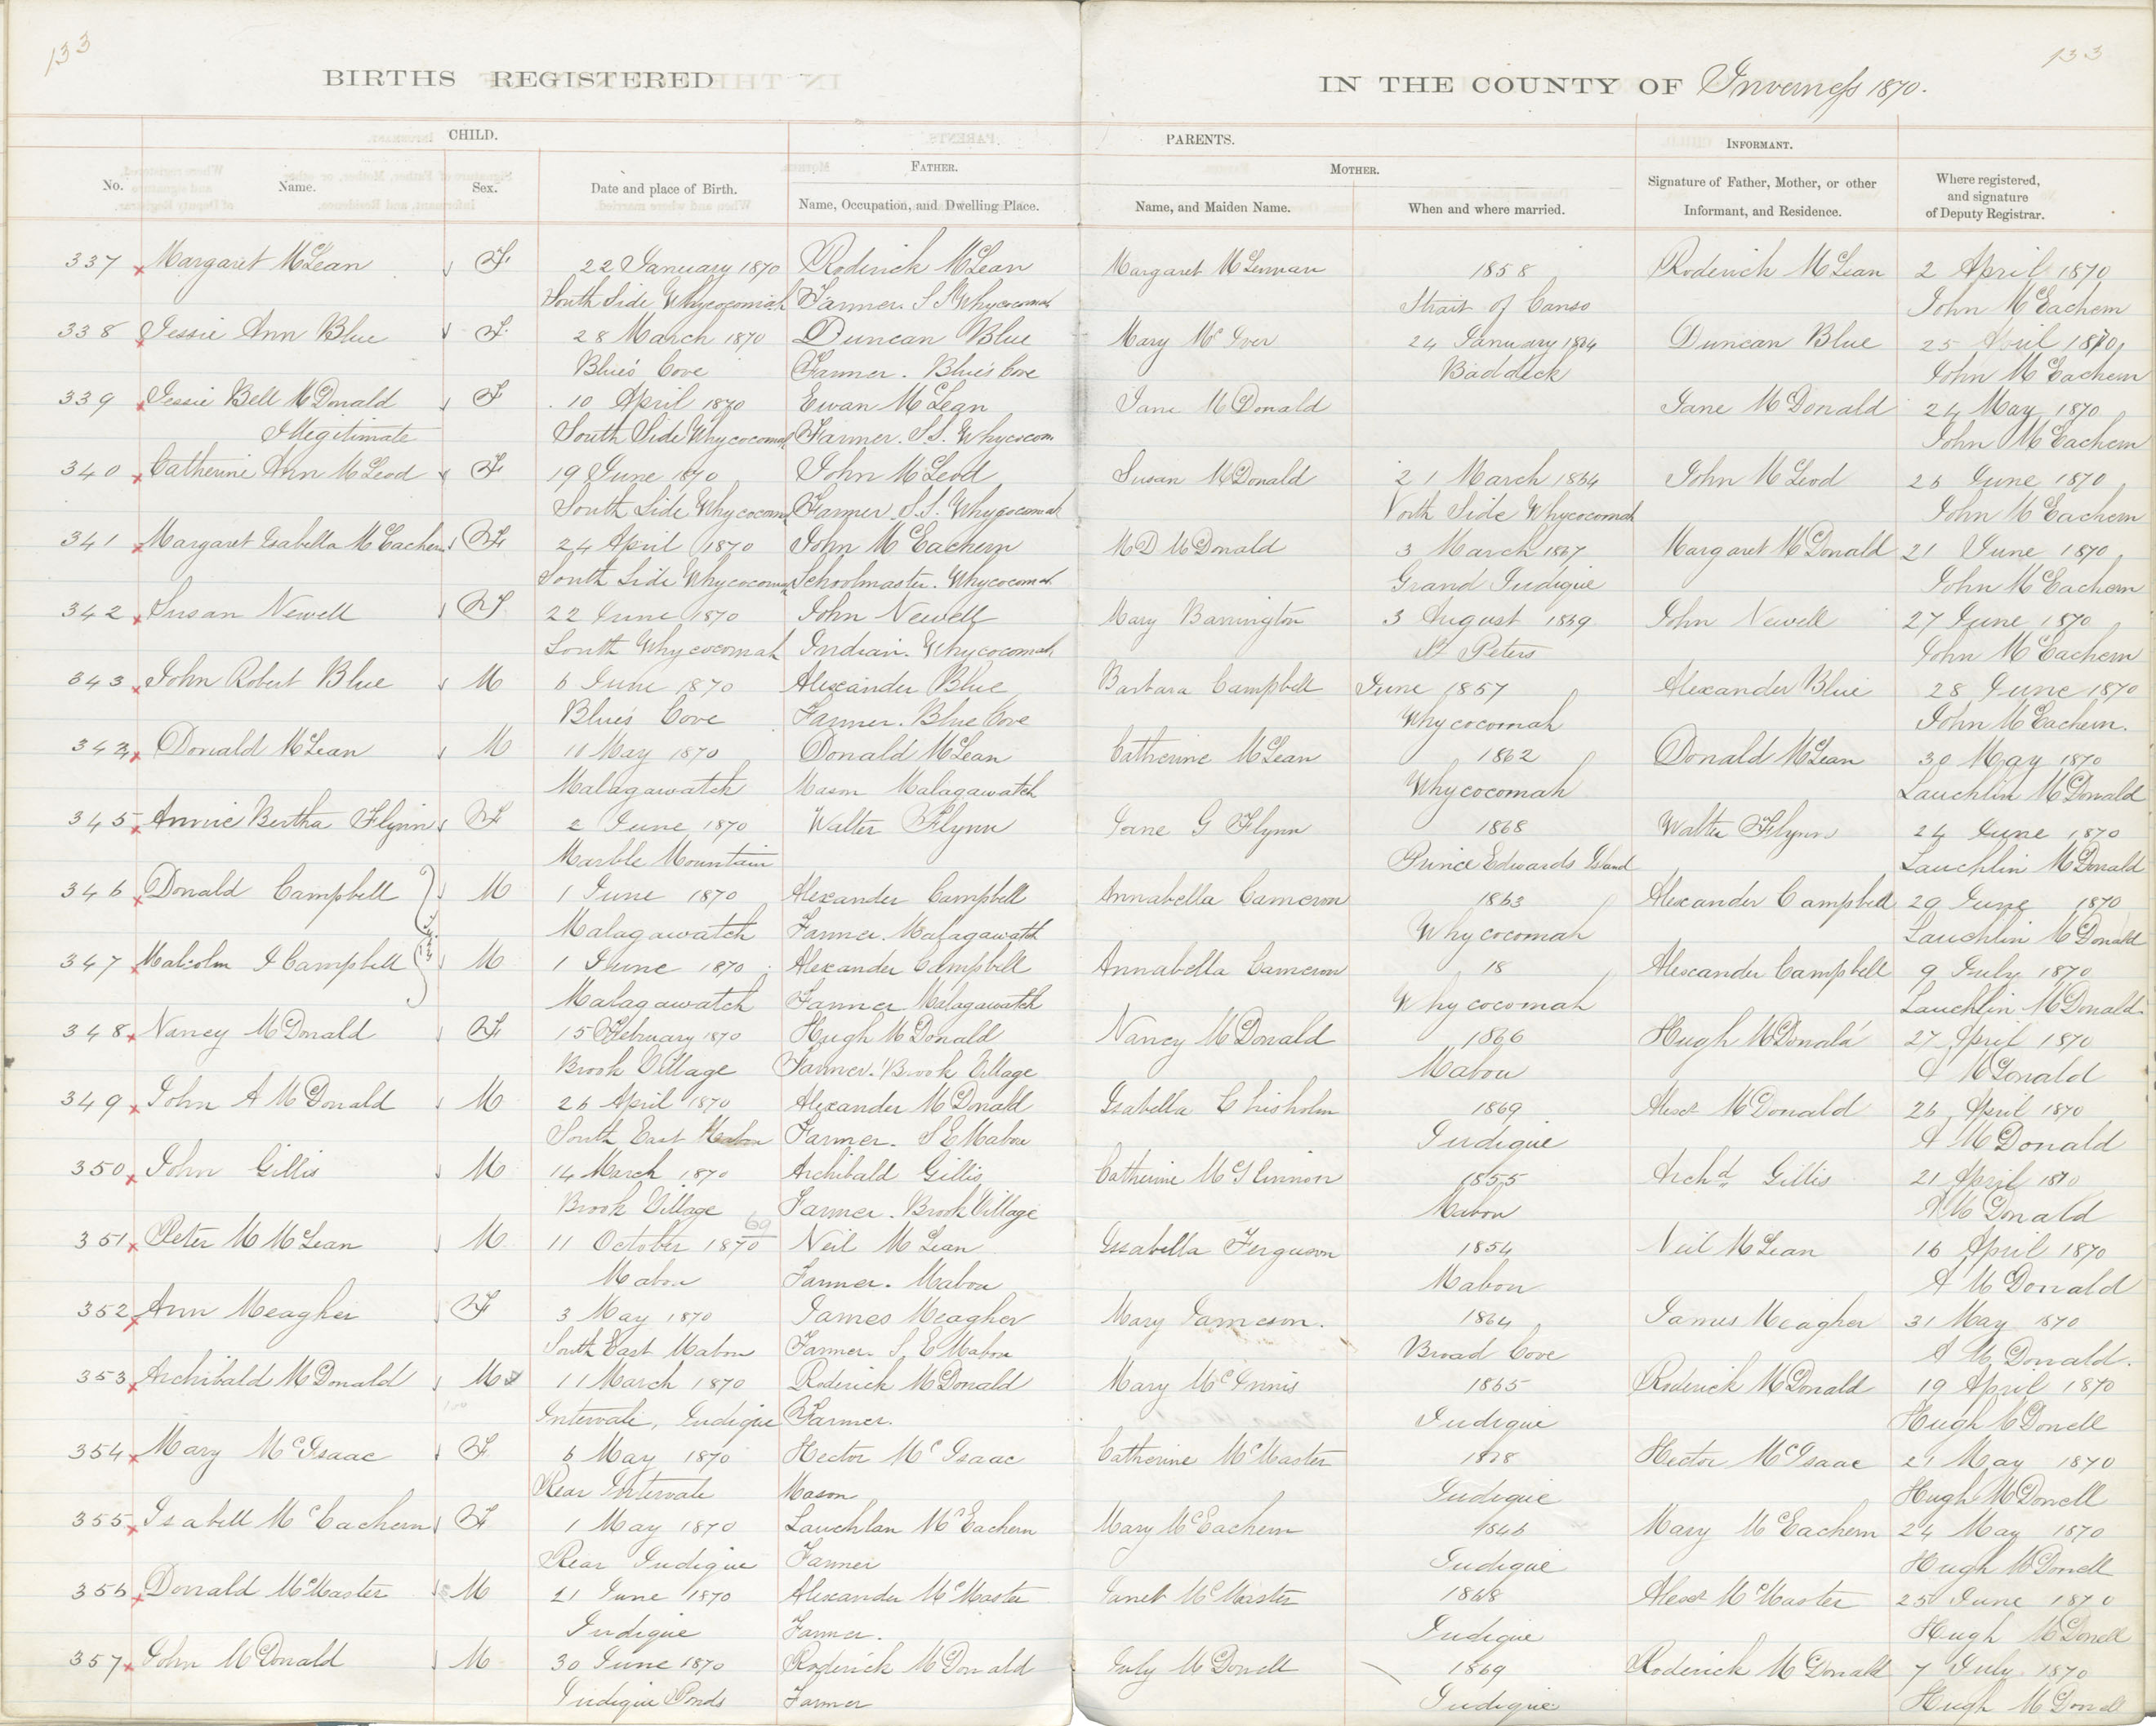 133
133
BIRTHS REGISTERED
IN THE COUNTY OF Inverness 1870.
CHILD.
PARENTS.
INFORMANT.
FATHER.
MOTHER.
No.
Name.
Sex.
Date and place of Birth.
Name, Occupation, and Dwelling Place.
Name, and Maiden Name.
When and where married.
Signature of Father, Mother, or other
Informant, and Residence.
Where registered,
and signature
of Deputy Registrar.
337 Margaret McLean F 22 January 1870 Roderick McLean Margaret McLennan 1858 Roderick McLean 2 April 1870
South Side Whycocomah Farmer. S S Whycocomah Strait of Canso John McEachern
338 Jessie Ann Blue F. 28 March 1870 Duncan Blue Mary McIver 24 January 1864 Duncan Blue 25 April 1870
Blue's Cove Farmer. Blue's Cove Baddeck John McEachern
339 Jessie Bell McDonald F 10 April 1870 Ewan McLean Jane McDonald Jane McDonald 24 May 1870
Illegitimate South Side Whycocomah Farmer. S.S. Whycocom John McEachern
340 Catherine Ann McLeod F 19 June 1870 John McLeod Susan McDonald 21 March 1864 John McLeod 26 June 1870
South Side Whycocomah Farmer S.S. Whycocomah North Side Whycocomah John McEachern
341 Margaret Isabella McEachern F 24 April 1870 John McEachern McD McDonald 3 March 1867 Margaret McDonald 21 June 1870
South Side Whycocomah Schoolmaster. Whycocomah Grand Judique John McEachern
342 Susan Newell F 22 June 1870 John Newell Mary Barrington 3 August 1869 John Newell 27 June 1870
South Whycocomah Indian. Whycocomah St Peters John McEachern
343 John Robert Blue M 6 June 1870 Alexander Blue Barbara Campbell June 1857 Alexander Blue 28 June 1870
Blue's Cove Farmer. Blue Cove Whycocomah John McEachern.
344 Donald McLean M 11 May 1870 Donald McLean Catherine McLean 1862 Donald McLean 30 May 1870
Malagawatch Mason Malagawatch Whycocomah Lauchlin McDonald
345 Annie Bertha Flynn F 2 June 1870 Walter Flynn Jane G Flynn 1868 Walter Flynn 24 June 1870
Marble Mountain Prince Edwards Island Lauchlin McDonald
346 Donald Campbell M 1 June 1870 Alexander Campbell Annabella Cameron 1863 Alexander Campbell 29 June 1870
Malagawatch Farmer. Malagawatch Whycocomah Lauchlin McDonald
347 Malcolm J Campbell M 1 June 1870 Alexander Campbell Annabella Cameron 18 Alexander Campbell 9 July 1870
Malagawatch Farmer Malagawatch Whycocomah Lauchlin McDonald.
348 Nancy McDonald F 15 February 1870 Hugh McDonald Nancy McDonald 1866 Hugh McDonald 27 April 1870
Brook Village Farmer. Brook Village Mabou A McDonald
349 John A McDonald M 26 April 1870 Alexander McDonald Isabella Chisholm 1869 Alexr McDonald 26 April 1870
South East Mabou Farmer. S E Mabou Judique A McDonald
350 John Gillis M 14 March 1870 Archibald Gillis Catherine McKinnon 1855 Archd Gillis 21 April 1870
Brook Village Farmer. Brook Village Mabou A McDonald
351 Peter M McLean M 11 October 1870 69 Neil McLean Issabella Ferguson 1854 Neil McLean 16 April 1870
Mabou Farmer. Mabou Mabou A McDonald
352 Ann Meagher F 3 May 1870 James Meagher Mary Jameson. 1864 James Meagher 31 May 1870
South East Mabou Farmer. S. E Mabou Broad Cove A McDonald.
353 Archibald McDonald M 11 March 1870 Roderick McDonald Mary McInnis 1865 Roderick McDonald 19 April 1870
Intervale, Judique Farmer. Judique Hugh McDonell
354 Mary McIsaac F 6 May 1870 Hector McIsaac Catherine McMaster Hector McIsaac 21 May 1870
Rear Intervale Mason Judique Hugh McDonell
355 Isabell McEachern F 1 May 1870 Lauchlan McEachern Mary McEachern 1846 Mary McEachern 24 May 1870
Rear Judique Farmer Judique Hugh McDonell
356 Donald McMaster M 21 June 1870 Alexander McMaster Janet McMaster 1868 Alexr McMaster 25 June 1870
Judique Farmer. Judique Hugh McDonell
357 John McDonald M 30 June 1870 Roderick McDonald July McDonell 1869 Roderick McDonald 7 July 1870
Judique Ponds Farmer Judique Hugh McDonell